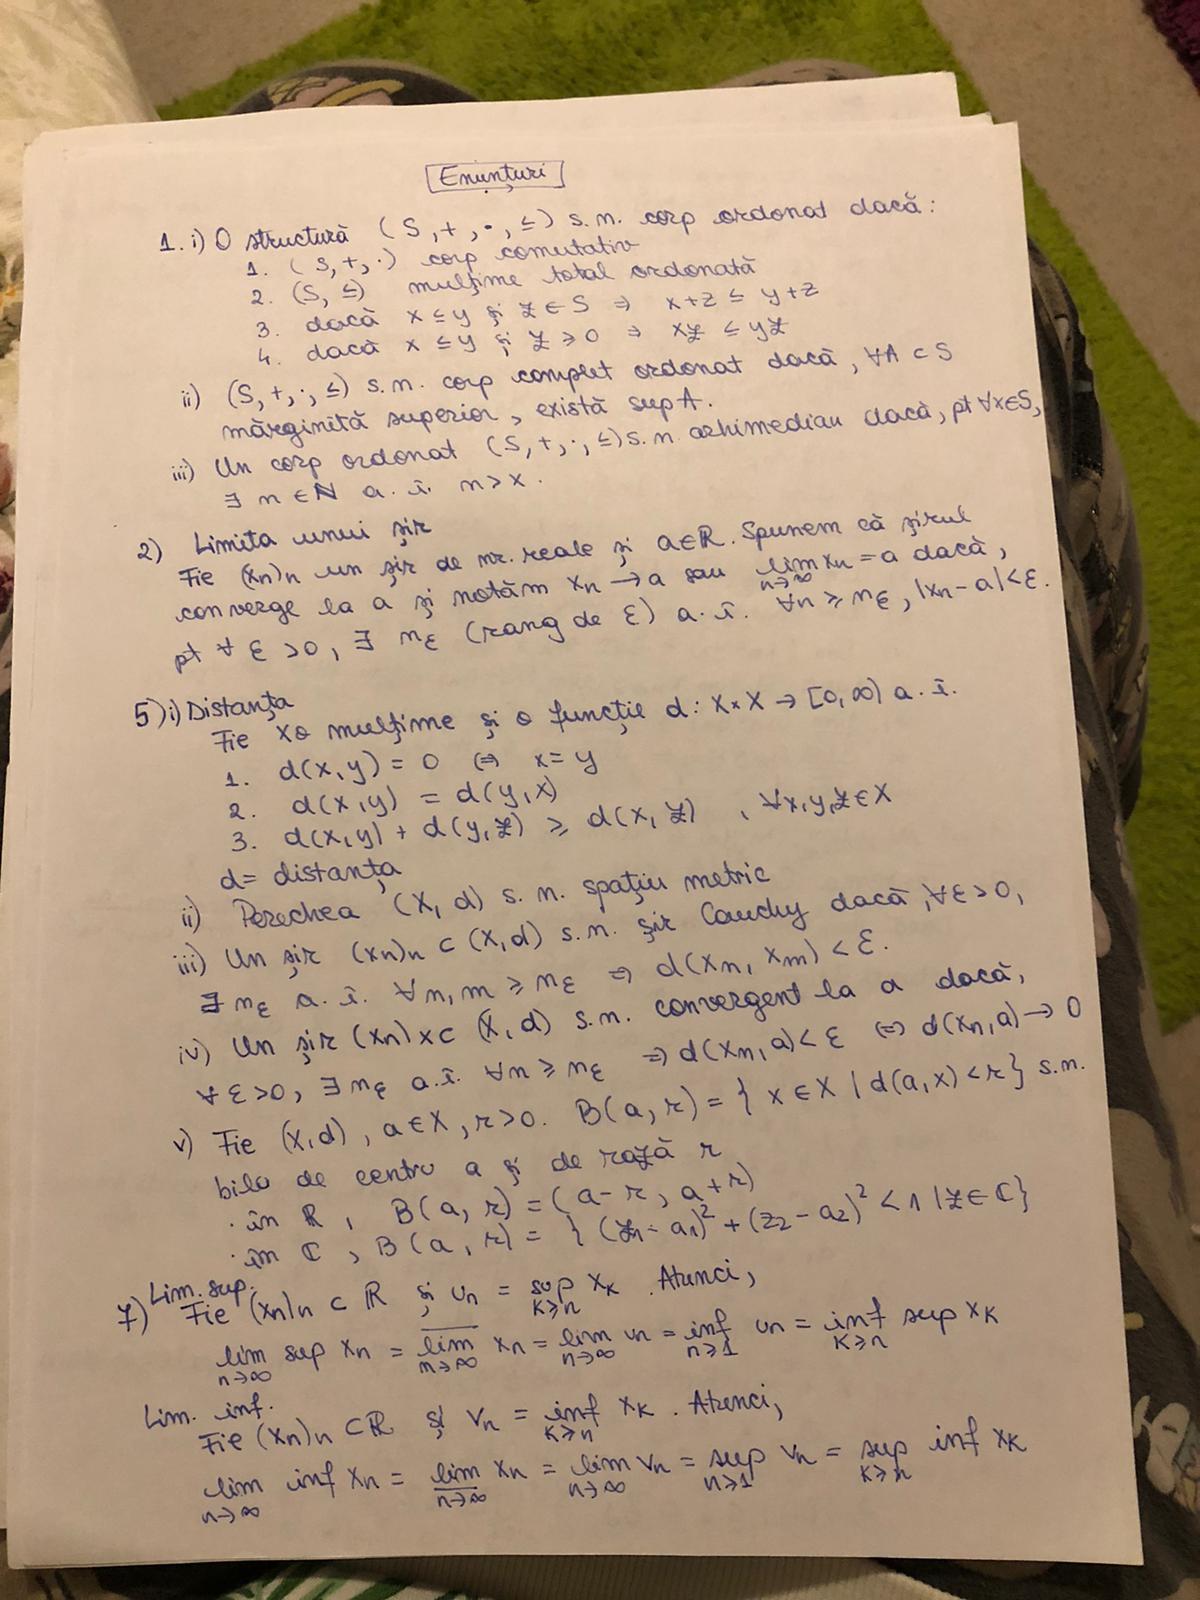 Enunțuri
1. i) O structură (S, +, ·, ≤) s.n. corp ordonat dacă:
1. (S, +, ·) corp comutativ
2. (S, ≤) mulțime total ordonată
3. dacă x ≤ y și z ∈ S ⇒ x+z ≤ y+z
4. dacă x ≤ y și z ≥ 0 ⇒ xz ≤ yz
ii) (S, +, ·, ≤) s.n. corp complet ordonat dacă, ∀A ⊂ S
mărginită superior, există sup A.
iii) Un corp ordonat (S, +, ·, ≤) s.n. arhimedian dacă, pt ∀x∈S,
∃ n ∈ N a. î. n > x.
2) Limita unui șir
Fie (xn)n un șir de nr. reale și a∈R. Spunem că șirul
converge la a și notăm xn → a sau lim n→∞ xn = a dacă,
pt ∀ ε > 0, ∃ nε (rang de ε) a. î. ∀n ≥ nε, |xn - a| < ε.
5) i) Distanța
Fie X o mulțime și o funcție d: X × X → [0, ∞) a. î.
1. d(x, y) = 0 ⇔ x = y
2. d(x, y) = d(y, x)
3. d(x, y) + d(y, z) ≥ d(x, z), ∀x, y, z ∈ X
d = distanța
ii) Perechea (X, d) s. n. spațiu metric
iii) Un șir (xn)n ⊂ (X, d) s.n. șir Cauchy dacă, ∀ε > 0,
∃ nε a. î. ∀n, m ≥ nε ⇒ d(xn, xm) < ε.
iv) Un șir (xn)x ⊂ (X, d) s.n. convergent la a dacă,
∀ε > 0, ∃ nε a.î. ∀n ≥ nε ⇒ d(xn, a) < ε ⇔ d(xn, a) → 0
v) Fie (X, d), a∈X, r > 0. B(a, r) = { x ∈ X | d(a, x) < r} s.n.
bila de centru a și de rază r
· în R, B(a, r) = (a - r, a + r)
· în C, B(a, r) = { (z1 - a1)² + (z2 - a2)² < 1 | z ∈ C}
Lim. sup.
7) Fie (xn)n ⊂ R și un = sup k≥n xk. Atunci,
lim n→∞ sup xn = \overline{lim} n→∞ xn = lim n→∞ un = inf n≥1 un = inf k≥n sup xk
Lim. inf.
Fie (xn)n ⊂ R și vn = inf k≥n xk. Atunci,
lim n→∞ inf xn = \underline{lim} n→∞ xn = lim n→∞ vn = sup n≥1 vn = sup k≥n inf xk